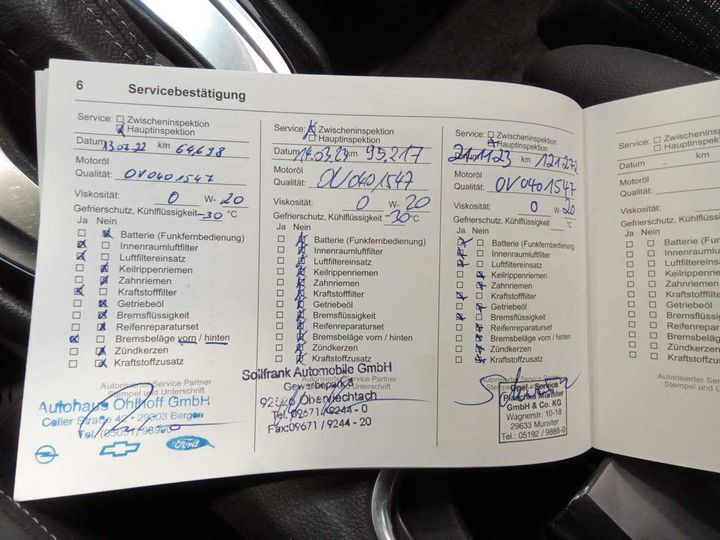 6 Servicebestätigung
Service: Zwischeninspektion
Hauptinspektion
Datum 13.07.22 km 64,698
Motoröl
Qualität: OV0401547
Viskosität: 0 W- 20
Gefrierschutz, Kühlflüssigkeit -30 °C
Ja Nein
Batterie (Funkfernbedienung)
Innenraumluftfilter
Luftfiltereinsatz
Keilrippenriemen
Zahnriemen
Kraftstofffilter
Getriebeöl
Bremsflüssigkeit
Reifenreparaturset
Bremsbeläge vorn / hinten
Zündkerzen
Kraftstoffzusatz
Autorisierter Service Partner
Stempel und Unterschrift
Autohaus Ohlhoff GmbH
Celler Straße 42 - 29303 Bergen
Tel. (05051)
Ford
Service: Zwischeninspektion
Hauptinspektion
Datum 14.03.23 km 95.217
Motoröl
Qualität: OV0401547
Viskosität: 0 W- 20
Gefrierschutz, Kühlflüssigkeit -30 °C
Ja Nein
Batterie (Funkfernbedienung)
Innenraumluftfilter
Luftfiltereinsatz
Keilrippenriemen
Zahnriemen
Kraftstofffilter
Getriebeöl
Bremsflüssigkeit
Reifenreparaturset
Bremsbeläge vorn / hinten
Zündkerzen
Kraftstoffzusatz
Autorisierter Service Partner
Soilfrank Automobile GmbH
92526 Oberviechtach
Tel. 09671 / 9244 - 0
Fax: 09671 / 9244 - 20
Service: Zwischeninspektion
Hauptinspektion
Datum 21.11.23 km 121.272
Motoröl
Qualität: OV0401547
Viskosität: 0 W- 20
Gefrierschutz, Kühlflüssigkeit °C
Ja Nein
Batterie (Funkfernbedienung)
Innenraumluftfilter
Luftfiltereinsatz
Keilrippenriemen
Zahnriemen
Kraftstofffilter
Getriebeöl
Bremsflüssigkeit
Reifenreparaturset
Bremsbeläge vorn / hinten
Zündkerzen
Kraftstoffzusatz
Autorisierter Service
Munster
GmbH & Co. KG
Wagnerstr. 10-18
29633 Munster
Tel.: 05192 / 9888-0
Service: Zwischeninspektion
Hauptinspektion
Datum km
Motoröl
Qualität:
Viskosität:
Gefrierschutz, Kühlflüssigkeit
Ja Nein
Batterie (Funk
Innenraumluft
Luftfiltereins
Keilrippenri
Zahnriemen
Kraftstofffil
Getriebeöl
Bremsflüss
Reifenrep
Bremsbel
Zündker
Kraftsto
Autorisi
Stempel